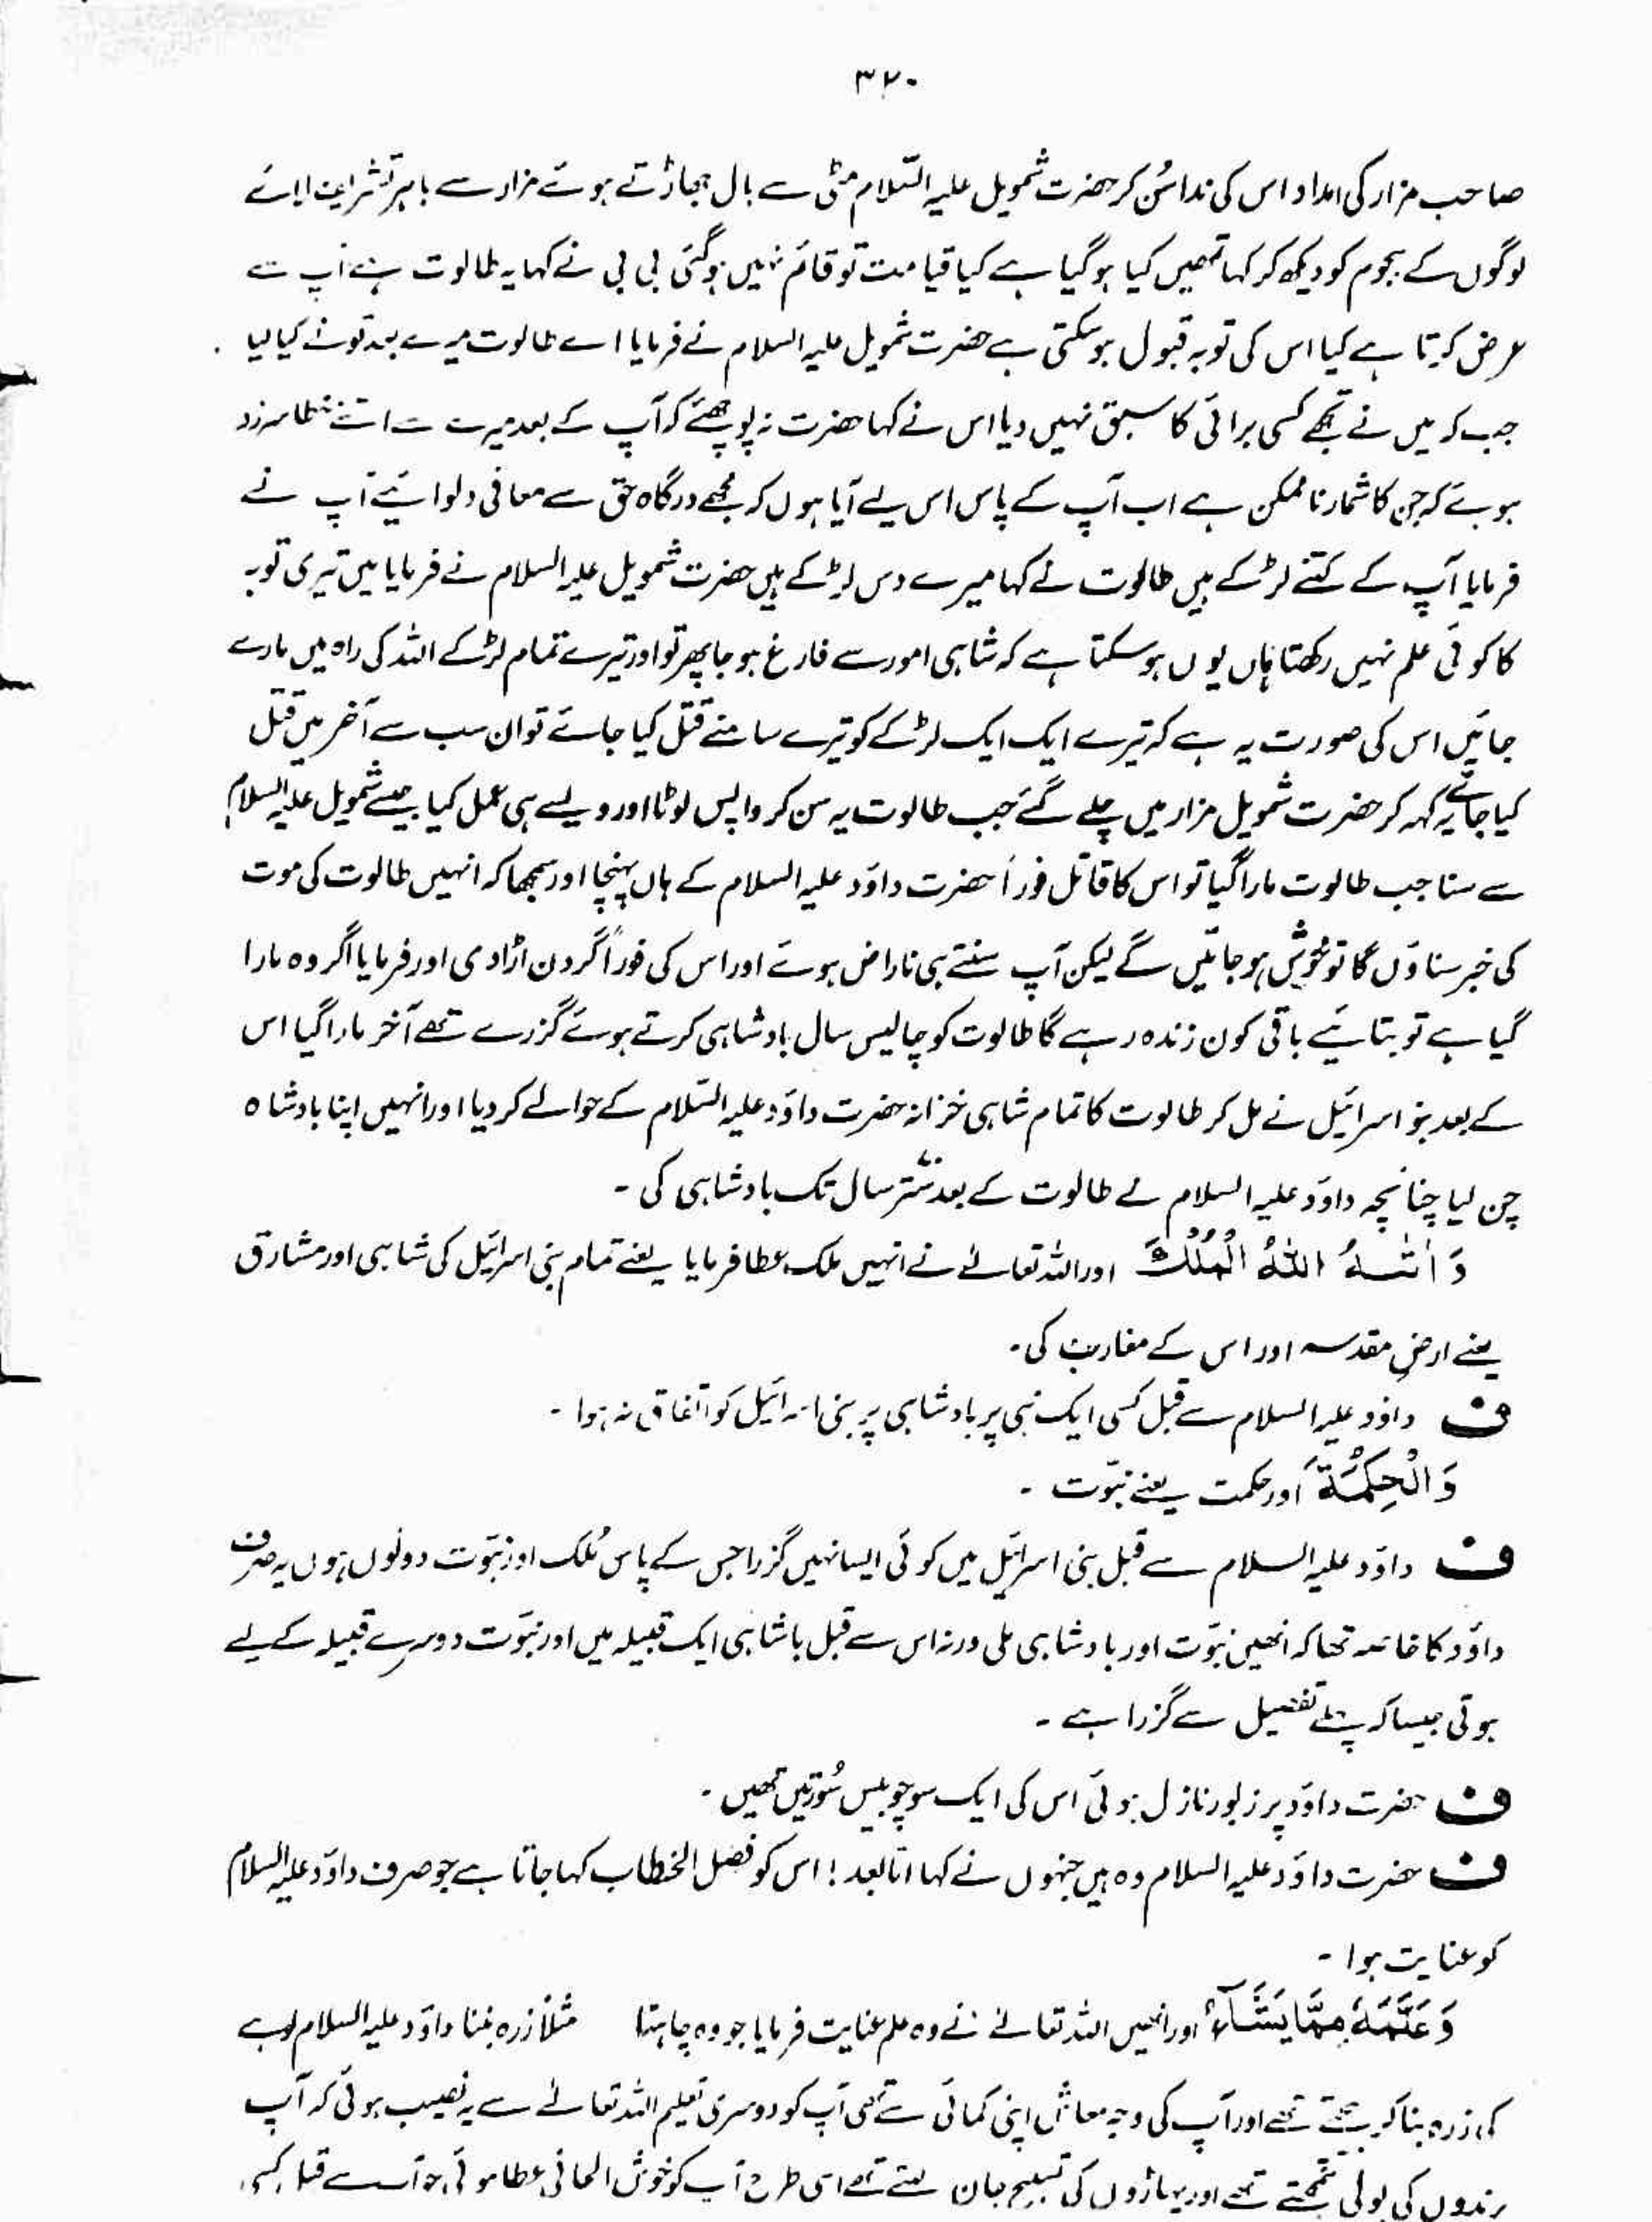 ۳۲۰
صاحب مزار کی امداد اس کی ندا سُن کر حضرت شمویل علیہ السّلام مٹی سے بال جھاڑتے ہوئے مزار سے باہر تشریف لائے
لوگوں کے ہجوم کو دیکھ کر کہا تمھیں کیا ہو گیا ہے کیا قیامت تو قائم نہیں ہو گئی بی بی نے کہا یہ طالوت ہے آپ سے
عرض کرتا ہے کیا اس کی توبہ قبول ہو سکتی ہے حضرت شمویل علیہ السلام نے فرمایا اے طالوت میرے بعد تو نے کیا کیا
جب کہ میں نے تجھے کسی برائی کا سبق نہیں دیا اس نے کہا حضرت نہ پوچھئے کہ آپ کے بعد میرے سے اتنے خطا سرزد
ہوئے کہ جن کا شمار ناممکن ہے اب آپ کے پاس اس لیے آیا ہوں کہ مجھے درگاہ حق سے معافی دلوائیے آپ نے
فرمایا آپ کے کتنے لڑکے ہیں طالوت نے کہا میرے دس لڑکے ہیں حضرت شمویل علیہ السلام نے فرمایا میں تیری توبہ
کا کوئی علم نہیں رکھتا ہاں یوں ہو سکتا ہے کہ شاہی امور سے فارغ ہو جا پھر تو اور تیرے تمام لڑکے اللہ کی راہ میں مارے
جائیں اس کی صورت یہ ہے کہ تیرے ایک ایک لڑکے کو تیرے سامنے قتل کیا جائے تو ان سب سے آخر میں قتل
کیا جائے یہ کہہ کر حضرت شمویل مزار میں چلے گئے جب طالوت یہ سن کر واپس لوٹا اور ویسے ہی عمل کیا جیسے شمویل علیہ السلام
سے سنا جب طالوت مارا گیا تو اس کا قاتل فوراً حضرت داؤد علیہ السلام کے ہاں پہنچا اور سمجھا کہ انہیں طالوت کی موت
کی خبر سناؤں گا تو خوش ہو جائیں گے لیکن آپ سنتے ہی ناراض ہوئے اور اس کی فوراً گردن اڑا دی اور فرمایا اگر وہ مارا
گیا ہے تو بتائیے باقی کون زندہ رہے گا طالوت کو چالیس سال بادشاہی کرتے ہوئے گزرے تھے آخر مارا گیا اس
کے بعد بنو اسرائیل نے مل کر طالوت کا تمام شاہی خزانہ حضرت داؤد علیہ السّلام کے حوالے کر دیا اور انہیں اپنا بادشاہ
چن لیا چنانچہ داؤد علیہ السلام نے طالوت کے بعد ستّر سال تک بادشاہی کی ۔
وَ اٰتٰىهُ اللّٰهُ الْمُلْكَ اور اللہ تعالےٰ نے انہیں ملک عطا فرمایا یعنے تمام بنی اسرائیل کی شاہی اور مشارق
یعنے ارضِ مقدسہ اور اس کے مغارب کی ۔
ف داؤد علیہ السلام سے قبل کسی ایک نبی پر بادشاہی پر بنی اسرائیل کو اتفاق نہ ہوا ۔
وَ الْحِكْمَةَ اور حکمت یعنے نبوّت ۔
ف داؤد علیہ السلام سے قبل بنی اسرائیل میں کوئی ایسا نہیں گزرا جس کے پاس مُلک اور نبوّت دونوں ہوں یہ صرف
داؤد کا خاصہ تھا کہ انھیں نبوّت اور بادشاہی ملی ورنہ اس سے قبل باشاہی ایک قبیلہ میں اور نبوّت دوسرے قبیلہ کے لیے
ہوتی جیسا کہ پہلے تفصیل سے گزرا ہے ۔
ف حضرت داؤد پر زبور نازل ہوئی اس کی ایک سو چوبیس سُورتیں تھیں ۔
ف حضرت داؤد علیہ السلام وہ ہیں جنہوں نے کہا امّا بعد ! اس کو فصل الخطاب کہا جاتا ہے جو صرف داؤد علیہ السلام
کو عنایت ہوا ۔
وَ عَلَّمَهٗ مِمَّا یَشَآءُ اور انھیں اللہ تعالےٰ نے وہ علم عنایت فرمایا جو وہ چاہتا مثلاً زرہ بننا داؤد علیہ السلام لوہے
کی زرہ بنا کر بیچتے تھے اور آپ کی وجہ معاش اپنی کمائی سے تھی آپ کو دوسری تعلیم اللہ تعالےٰ سے یہ نصیب ہوئی کہ آپ
پرندوں کی بولی سمجھتے تھے اور پہاڑوں کی تسبیح جان لیتے تھے اسی طرح آپ کو خوش الحانی عطا ہوئی جو آپ سے قبل کسی